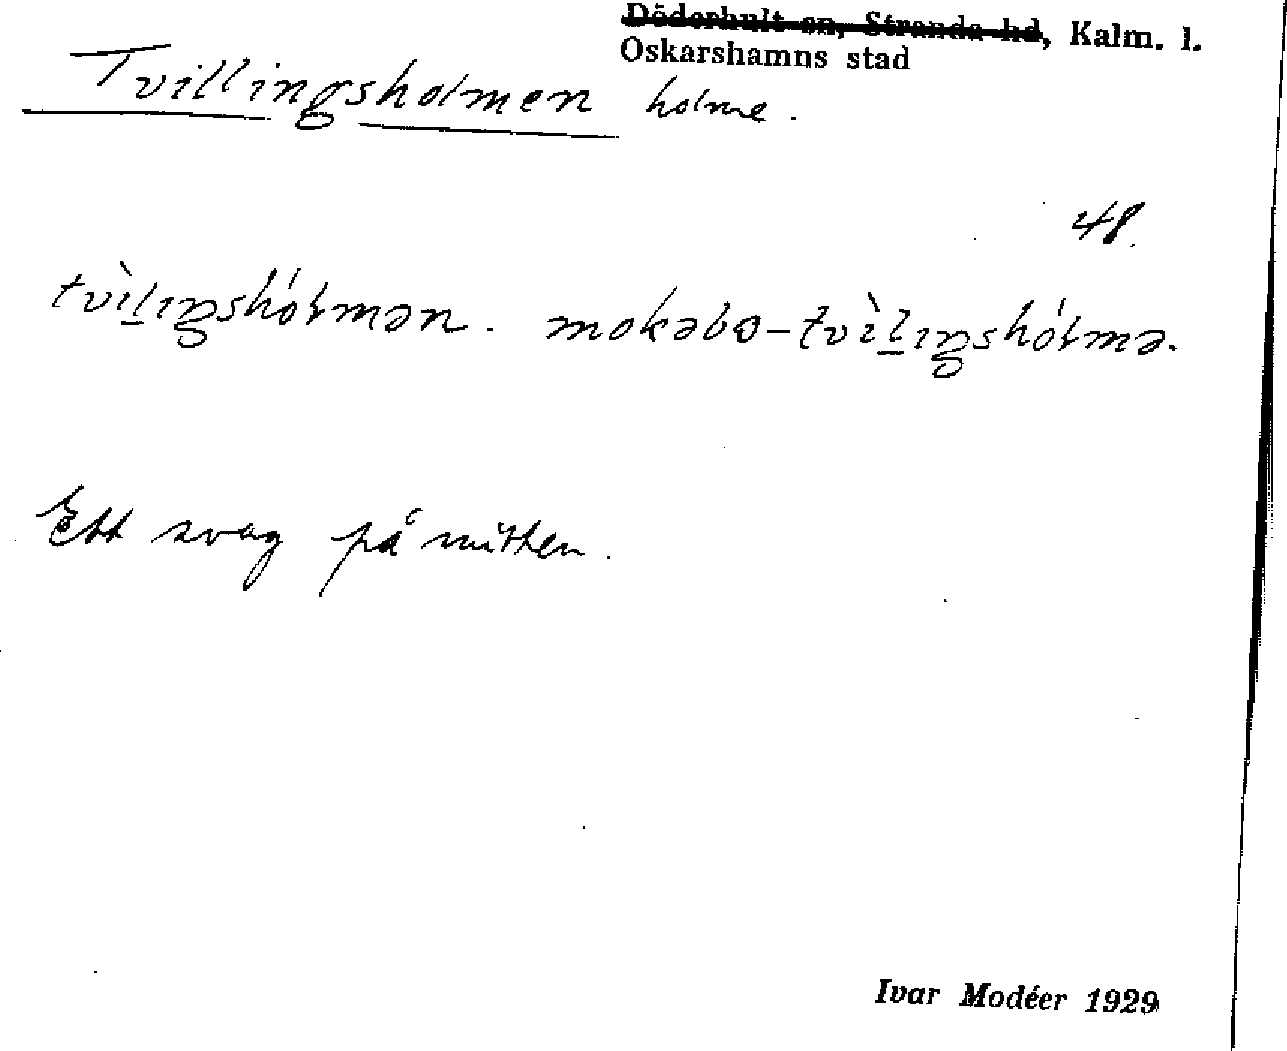 Döderhult sn, Stranda hd, Kalm. l.
Oskarshamns stad
Tvillingsholmen holme.
48.
tvìl̲ıŋshólmən. mokəbo-tvìl̲ıŋshólmə.
Ett svag på mitten.
Ivar Modéer 1929